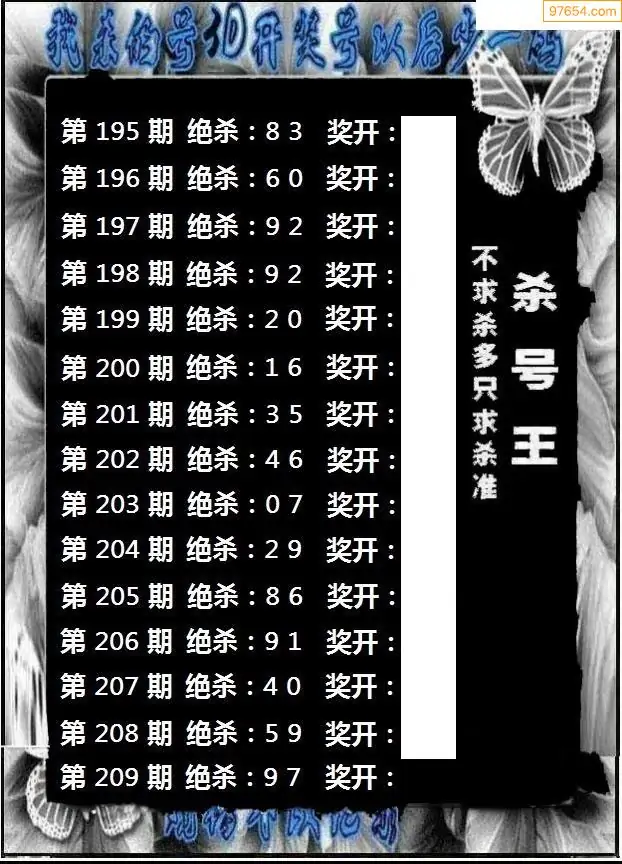 97654.com
我杀的号3D开奖号以后少一码
第 195 期 绝杀：8 3 奖开：
第 196 期 绝杀：6 0 奖开：
第 197 期 绝杀：9 2 奖开：
第 198 期 绝杀：9 2 奖开：
第 199 期 绝杀：2 0 奖开：
第 200 期 绝杀：1 6 奖开：
第 201 期 绝杀：3 5 奖开：
第 202 期 绝杀：4 6 奖开：
第 203 期 绝杀：0 7 奖开：
第 204 期 绝杀：2 9 奖开：
第 205 期 绝杀：8 6 奖开：
第 206 期 绝杀：9 1 奖开：
第 207 期 绝杀：4 0 奖开：
第 208 期 绝杀：5 9 奖开：
第 209 期 绝杀：9 7 奖开：
杀号王
不求杀多只求杀准